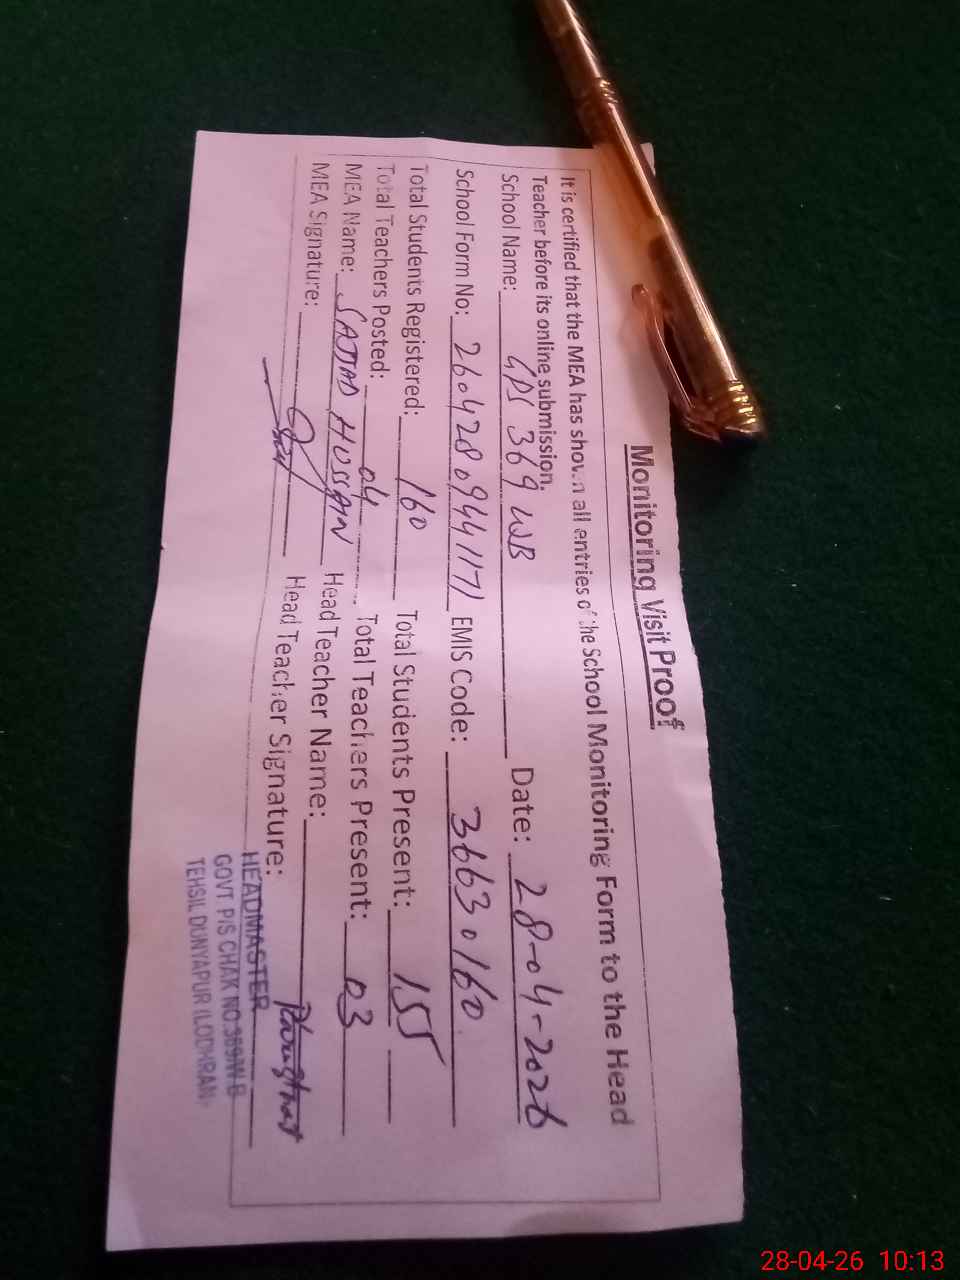 Monitoring Visit Proof
It is certified that the MEA has shown all entries of the School Monitoring Form to the Head
Teacher before its online submission.
School Name: GPS 369 WB Date: 28-04-2026
School Form No: 26042809441171 EMIS Code: 36630160
Total Students Registered: 160 Total Students Present: 155
Total Teachers Posted: 04 Total Teachers Present: 03
MEA Name: SAJJAD HUSSAIN Head Teacher Name:
MEA Signature: Head Teacher Signature:
HEADMASTER
GOVT P/S CHAK NO.369/W.B
TEHSIL DUNYAPUR (LODHRAN)
28-04-26 10:13